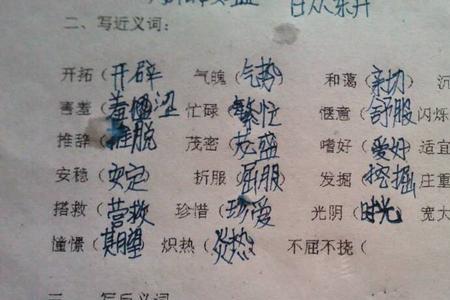 日从东升
二、写近义词:
开拓(开辟) 气魄(气势) 和蔼(亲切) 沉
害羞(羞涩) 忙碌(繁忙) 惬意(舒服) 闪烁
推辞(推脱) 茂密(茂盛) 嗜好(爱好) 适宜
安稳(安定) 折服(屈服) 发掘(挖掘) 庄重
搭救(营救) 珍惜(珍爱) 光阴(时光) 宽大
憧憬(期望) 炽热(炎热) 不屈不挠(
三、写反义词